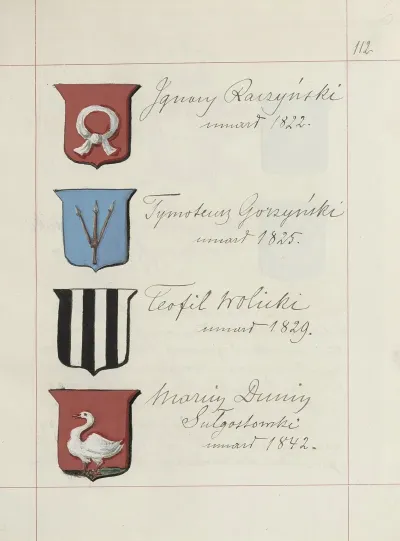 112.
Ignacy Raczyński
umarł 1822.
Tymoteusz Gorzyński
umarł 1825.
Teofil Wolicki
umarł 1829.
Marcin Dunin
Sulgostowski
umarł 1842.